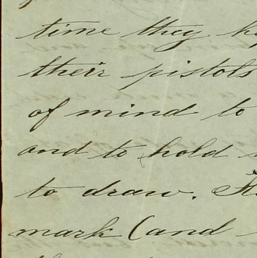 time they
their pistols
of mind to
and to hold
to draw.
mark (and